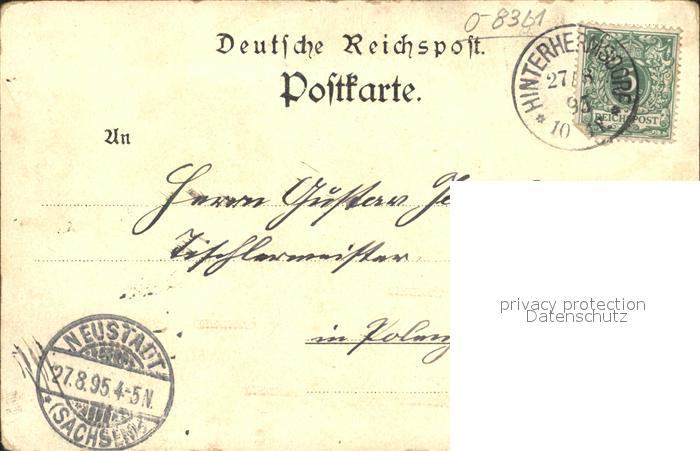 O-8361
Deutsche Reichspost.
Postkarte.
HINTERHERMSDORF
27 8
95
10
REICHSPOST
An
Herrn Gustav
Tischlermeister
in Polenz
privacy protection
Datenschutz
NEUSTADT
27.8.95.4-5N.
*(SACHSEN)*